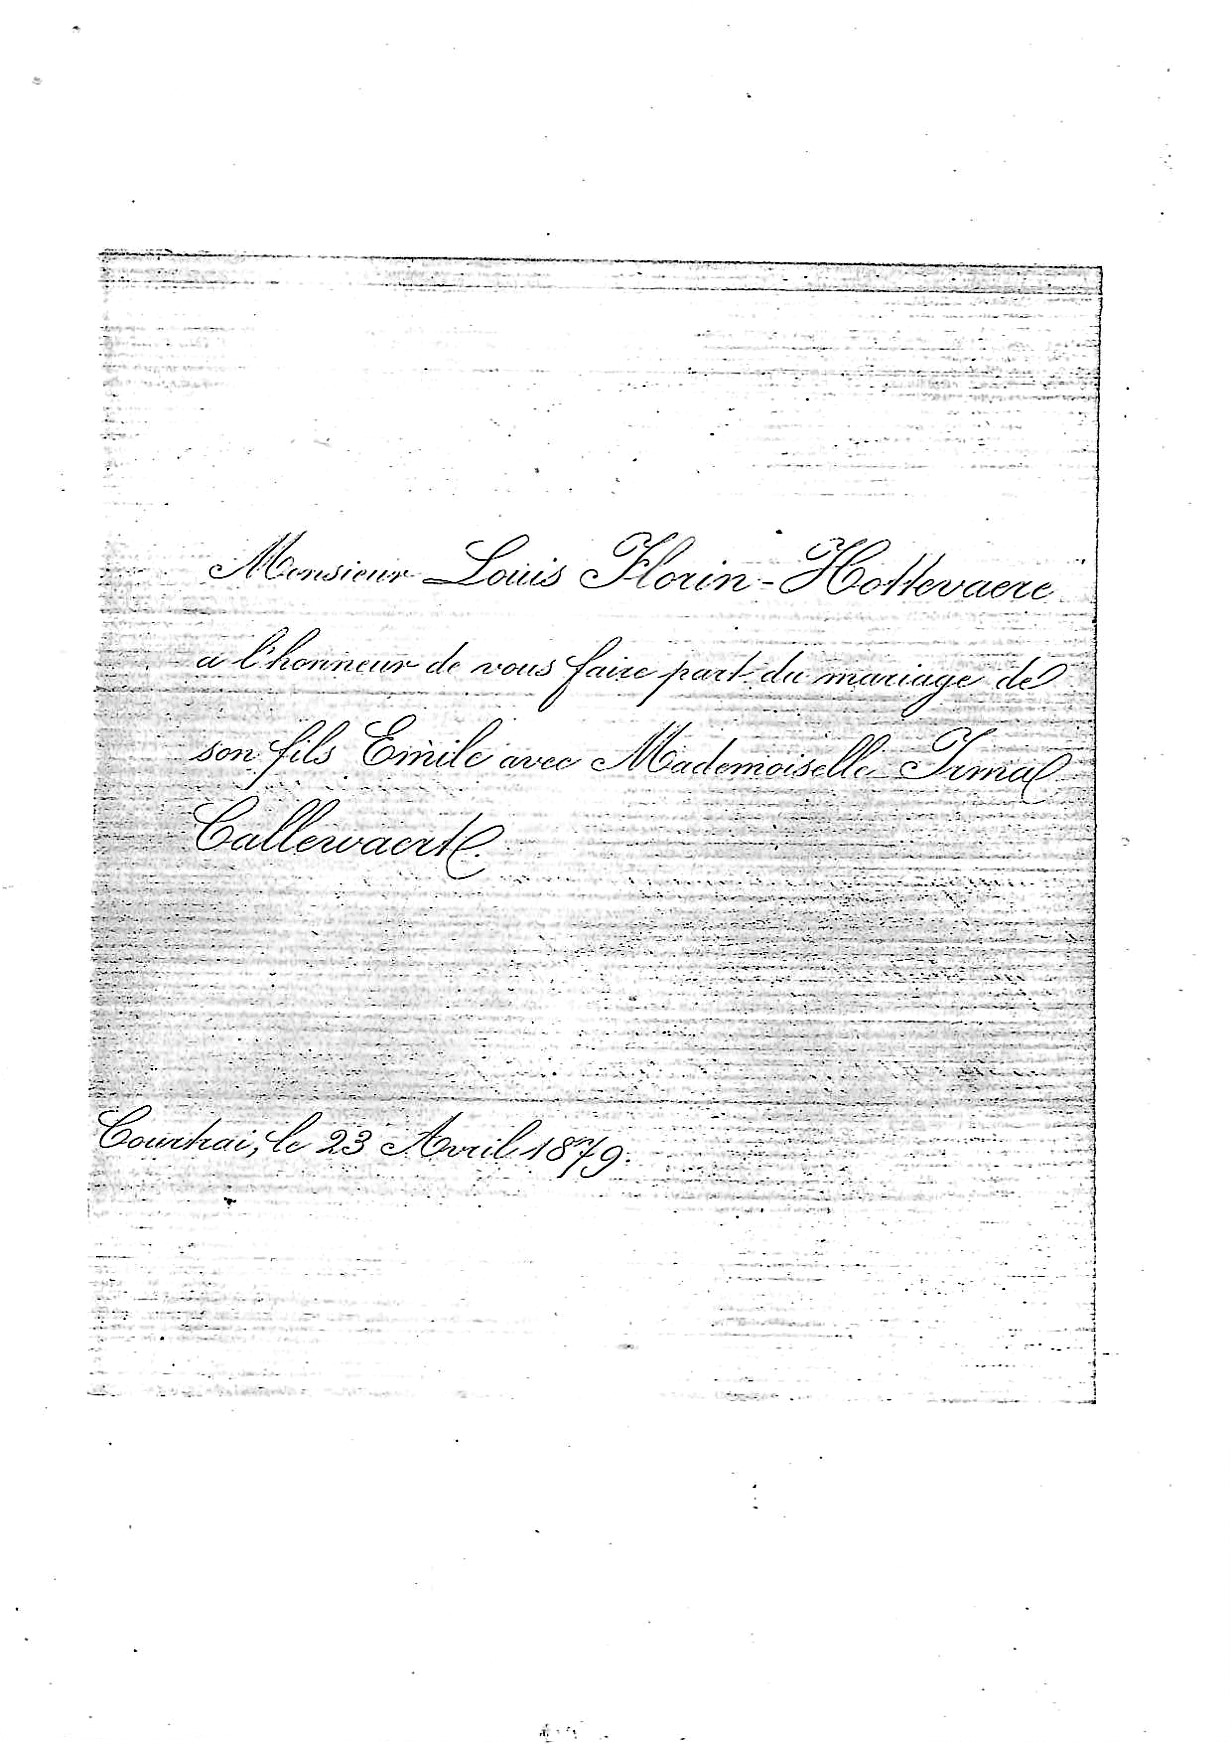 Monsieur Louis Florin-Hottevaere
a l'honneur de vous faire part du mariage de
son fils Emile avec Mademoiselle Irma
Callewaert.
Courtrai, le 23 Avril 1879.